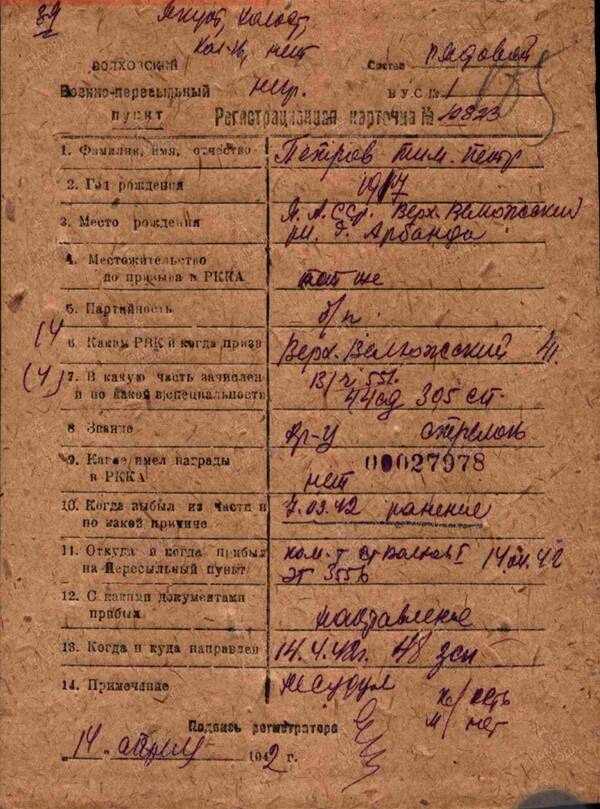 39 Якут, холост,
нет
Состав рядовой
ВОЛХОВСКИЙ
Военно-пересыльный
ПУНКТ
В У С № 1
Регистрационная карточка № 10823
1. Фамилия, имя, отчество Петров Тим. Петр
2. Год рождения 1917
3. Место рождения Я.А.ССР. Верх.Вилюйский
д. Арбанда
4. Местожительство
до призыва в РККА там же
5. Партийность б/п
(4 6 Каким РВК и когда призв Верх.Вилюйский 41.
(4) 7. В какую часть зачислен
и по какой в/специальности 44 сд 305 сп.
8 Звание кр-ц стрелок
9. Какие имел награды
в РККА нет 00027978
10. Когда выбыл из части и
по какой причине 7.03.42 ранение
11. Откуда и когда прибыл
на Пересыльный пункт 14.IV.42
ЭГ
12. С какими документами
прибыл направление
13. Когда и куда направлен 14.4.42г. 48 зсп
14. Примечание несудим
х/ есть
м/ нет
Подпись регистратора
„14" апреля 1942 г.